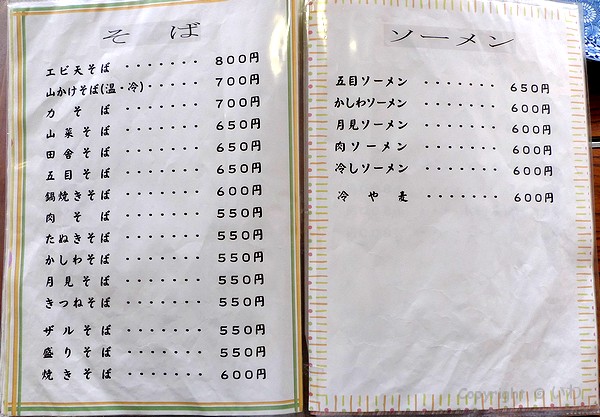 そば
エビ天そば ・・・・・・・ 800円
山かけそば(温・冷)・・・・・ 700円
力そば ・・・・・・・ 700円
山菜そば ・・・・・・・ 650円
田舎そば ・・・・・・・ 650円
五目そば ・・・・・・・ 650円
鍋焼きそば ・・・・・・・ 600円
肉そば ・・・・・・・ 550円
たぬきそば ・・・・・・・ 550円
かしわそば ・・・・・・・ 550円
月見そば ・・・・・・・ 550円
きつねそば ・・・・・・・ 550円
ザルそば ・・・・・・・ 550円
盛りそば ・・・・・・・ 550円
焼きそば ・・・・・・・ 600円
ソーメン
五目ソーメン ・・・・・・・ 650円
かしわソーメン ・・・・・・・ 600円
月見ソーメン ・・・・・・・ 600円
肉ソーメン ・・・・・・・ 600円
冷しソーメン ・・・・・・・ 600円
冷や麦 ・・・・・・・ 600円